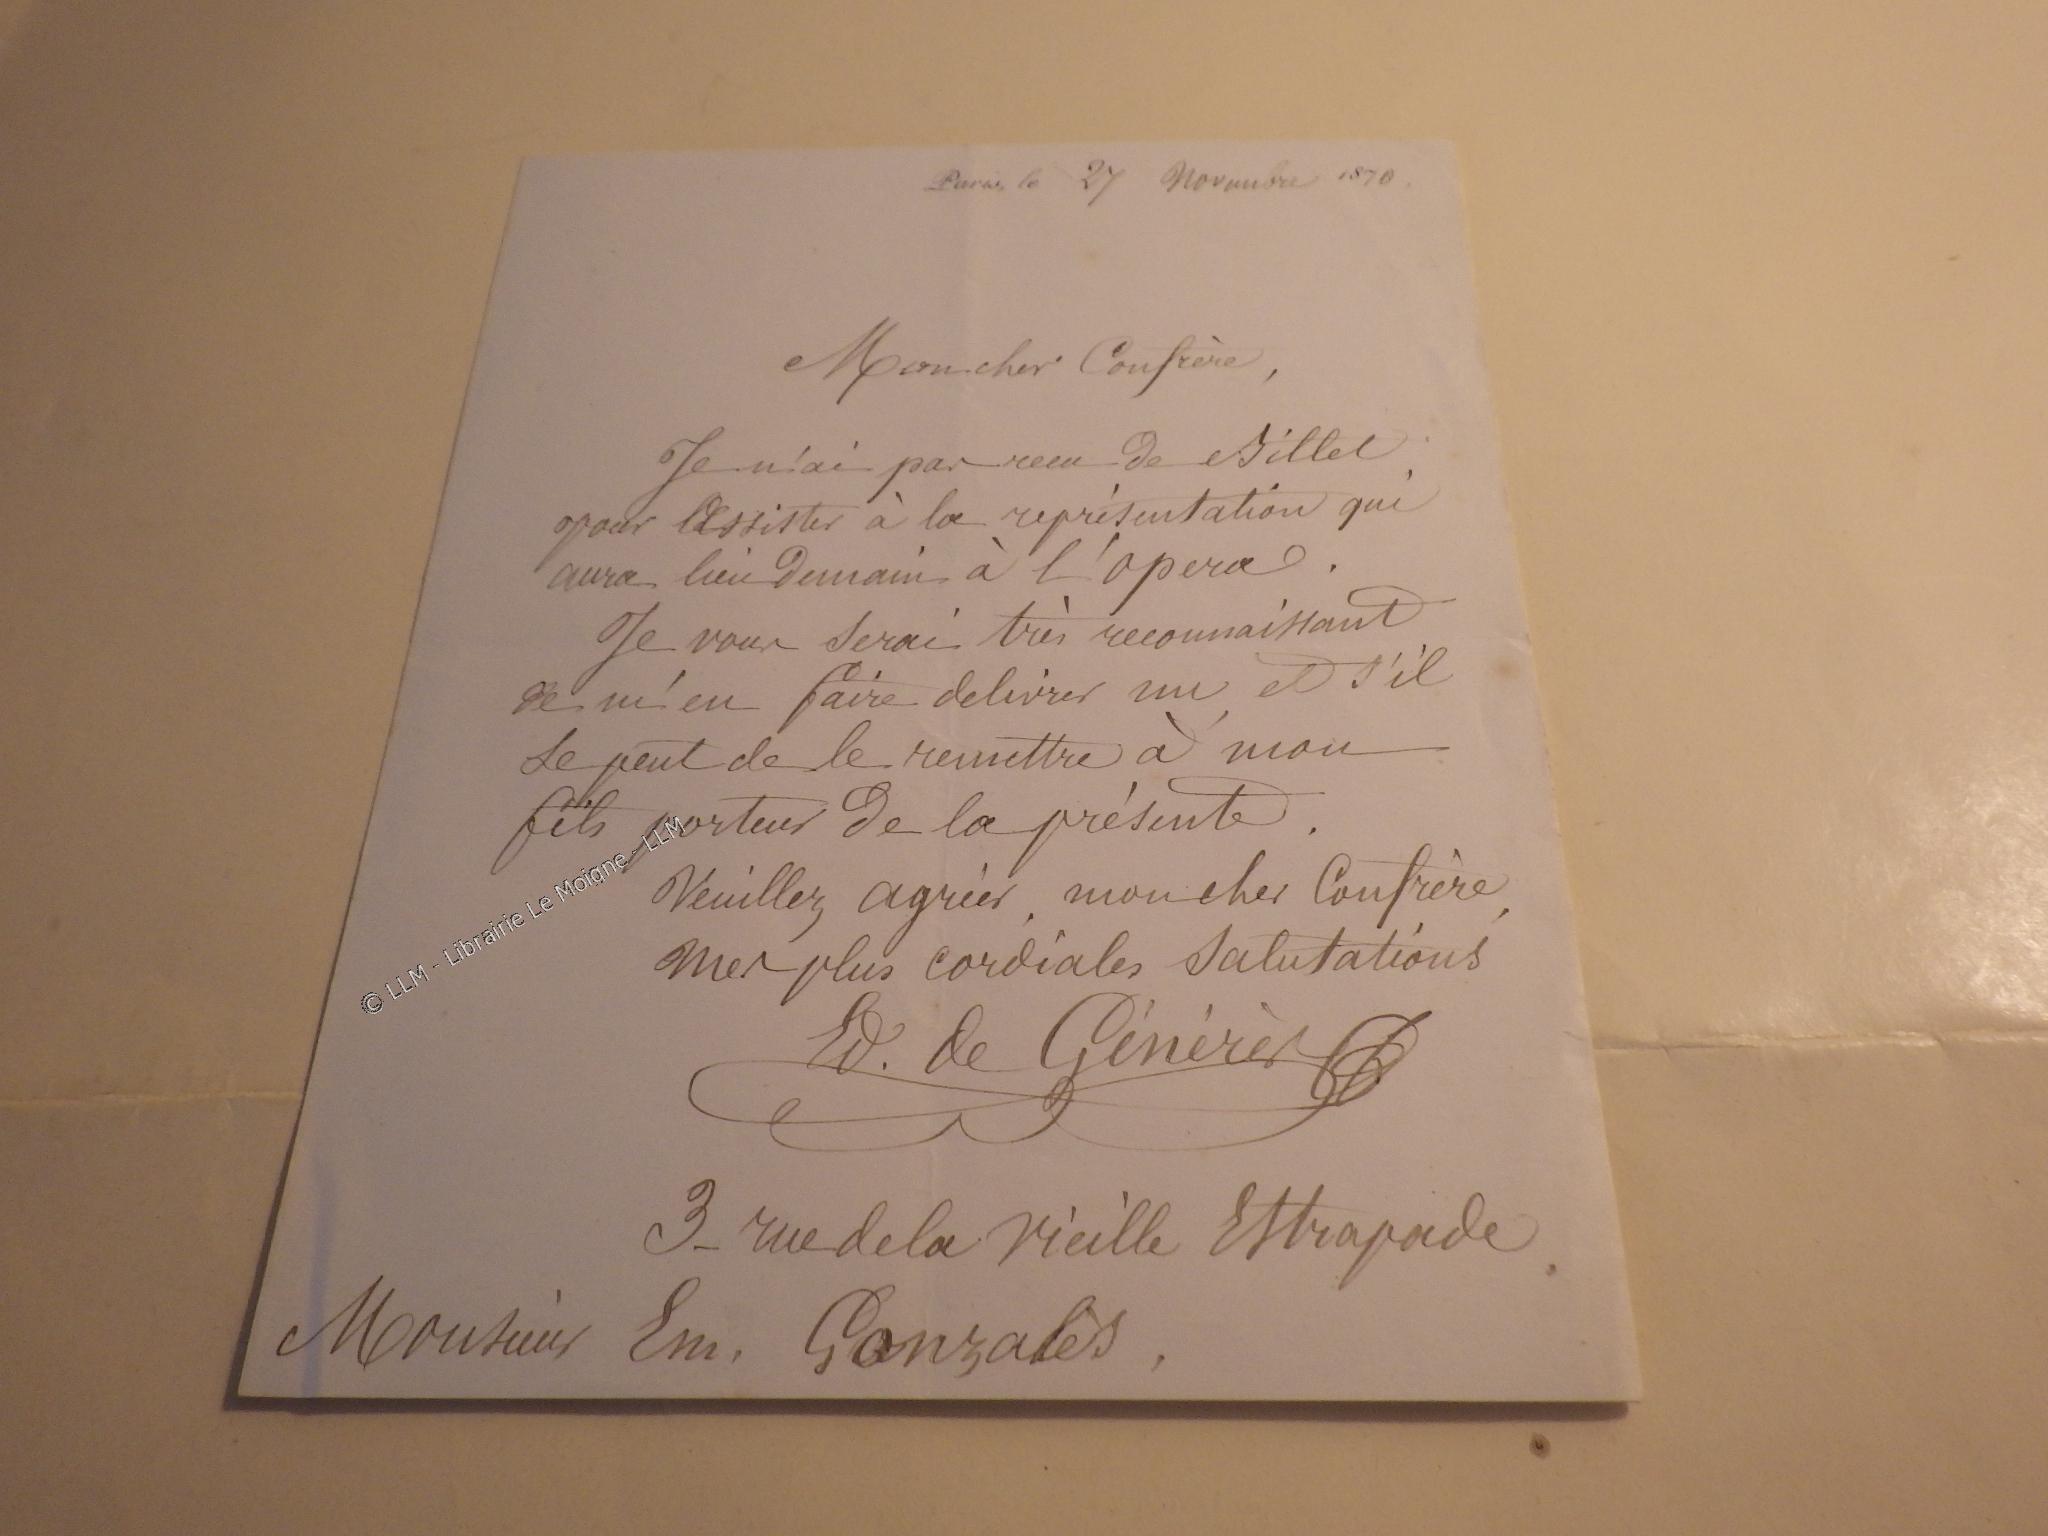 Paris, le 27 Novembre 1870.
Mon cher Confrère,
Je n'ai pas reçu de Billet
pour assister à la représentation qui
aura lieu demain à l'opera.
Je vous serai très reconnaissant
de m'en faire delivrer un, et s'il
se peut de le remettre à mon
fils porteur de la présente.
Veuillez agréer, mon cher Confrère,
mes plus cordiales salutations
Ed. de Générès
3 - rue de la Vieille Estrapade.
Monsieur Em. Gonzalès.
© LLM - Librairie Le Moigne - LLM